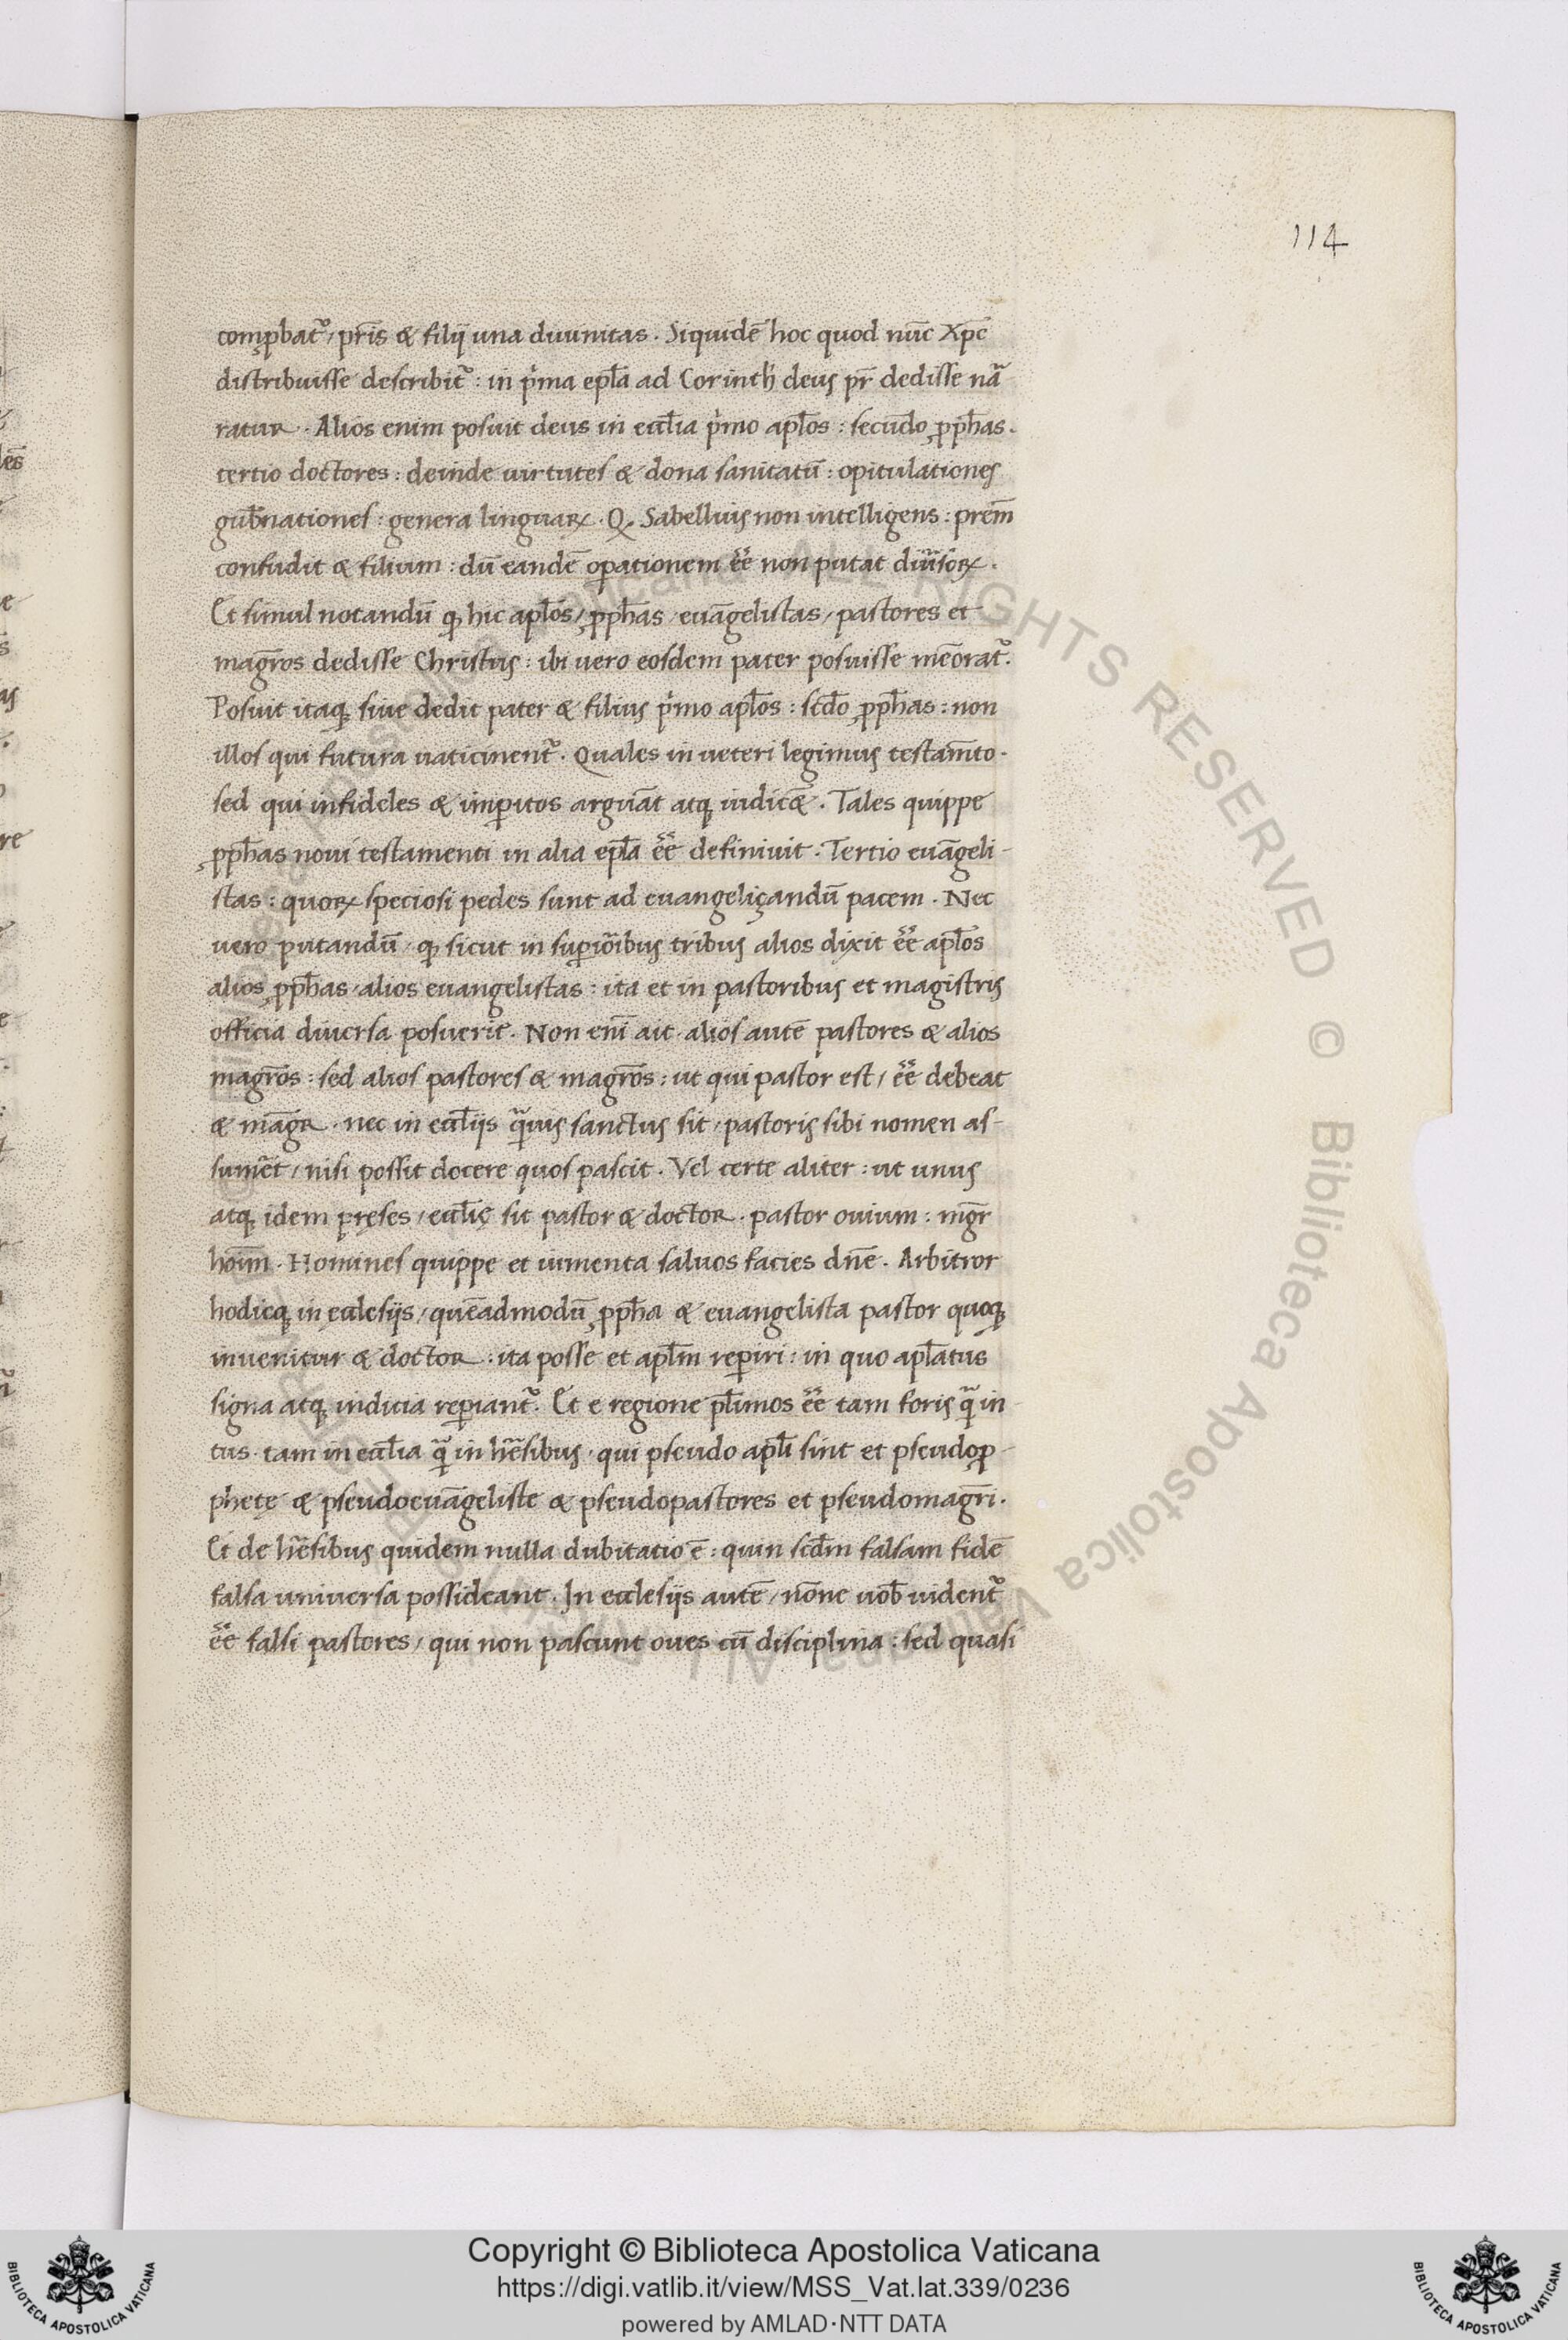 114
comꝓbat᷑, pr̄is & filij una diuinitas. Siquidē hoc quod nūc Xp̄c
distribuisse describit᷑: in p̍ma ep̄la ad Corinth̄ deus pr̄ dedisse nā
ratur. Alios enim posuit deus in eccl̄ia p̍mo apl̄os: secūdo ꝓph̄as.
tertio doctores: deinde uirtutes & dona sanitatū: opitulationes
gub̄nationes: genera linguaꝝ. Q. Sabellius non intelligens: prēm
confudit & filium: dū eandē oꝑationem ēē non putat diūsoꝝ.
Et simul notandū ꝙ hic apl̄os, ꝓph̄as, euāgelistas, pastores et
magr̄os dedisse Christus: ibi uero eosdem pater posuisse mēorat᷑.
Posuit itaqꝫ siue dedit pater & filius p̍mo apl̄os: scd̄o ꝓph̄as: non
illos qui futura uaticinent᷑. Quales in ueteri legimus testam̄to.
sed qui infideles & imꝑitos arguāt atqꝫ iudicēt. Tales quippe
ꝓph̄as noui testamenti in alia ep̄la ēē definiuit. Tertio euāgeli-
stas: quoꝝ speciosi pedes sunt ad euangeliçandū pacem. Nec
uero putandū, ꝙ sicut in suꝑiōibus tribus alios dixit ēē apl̄os
alios ꝓph̄as, alios euangelistas: ita et in pastoribus et magistris
officia diuersa posuerit. Non enī ait. alios autē pastores & alios
magr̄os: sed alios pastores & magr̄os: ut qui pastor est, ēē debeat
& māgr. nec in eccl̄ijs q̄uis sanctus sit, pastoris sibi nomen as-
sum̄et, nisi possit docere quos pascit. Vel certe aliter: ut unus
atqꝫ idem pręses, eccl̄ię sit pastor & doctor. pastor ouium: mgr̄
hoīm. Homines quippe et iumenta saluos facies dn̄e. Arbitror
hodieqꝫ in ecclesijs, quēadmodū ꝓph̄a & euangelista pastor quoqꝫ
inuenitur & doctor: ita posse et apl̄m reꝑiri: in quo apl̄atus
signa atqꝫ indicia reꝑiant᷑. Et e regione pl̄imos ēē tam foris q̄ in
tus. tam in eccl̄ia q̄ in hr̄esibus. qui pseudo apl̄i sint et pseudoꝓ-
phetę & pseudoeuāgeliste & pseudopastores et pseudomagr̄i.
Et de hr̄esibus quidem nulla dubitatio ē: quin scd̄m falsam fidē
falsa uniuersa possideant. In ecclesijs autē, nōne uob̄ uident᷑
ēē falsi pastores, qui non pascunt oues cū disciplina: sed quasi
Copyright © Biblioteca Apostolica Vaticana
https://digi.vatlib.it/view/MSS_Vat.lat.339/0236
powered by AMLAD·NTT DATA